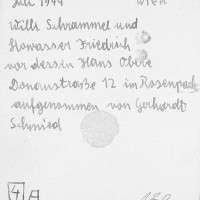 Juli 1944 Wien
Willi Schrammel und
Howasser Friedrich
vor dessen Haus Obere
Donaustraße 12 im Rosenpark
aufgenommen von Gerhardt
Schmied
4 A